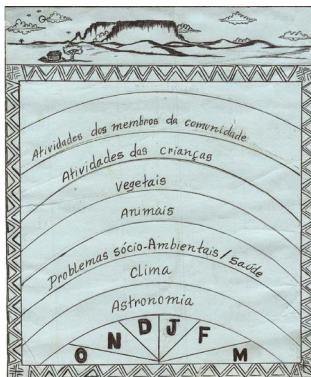 Atividades dos membros da comunidade
Atividades das crianças
Vegetais
Animais
Problemas sócio-Ambientais/saúde
Clima
Astronomia
O N D J F M